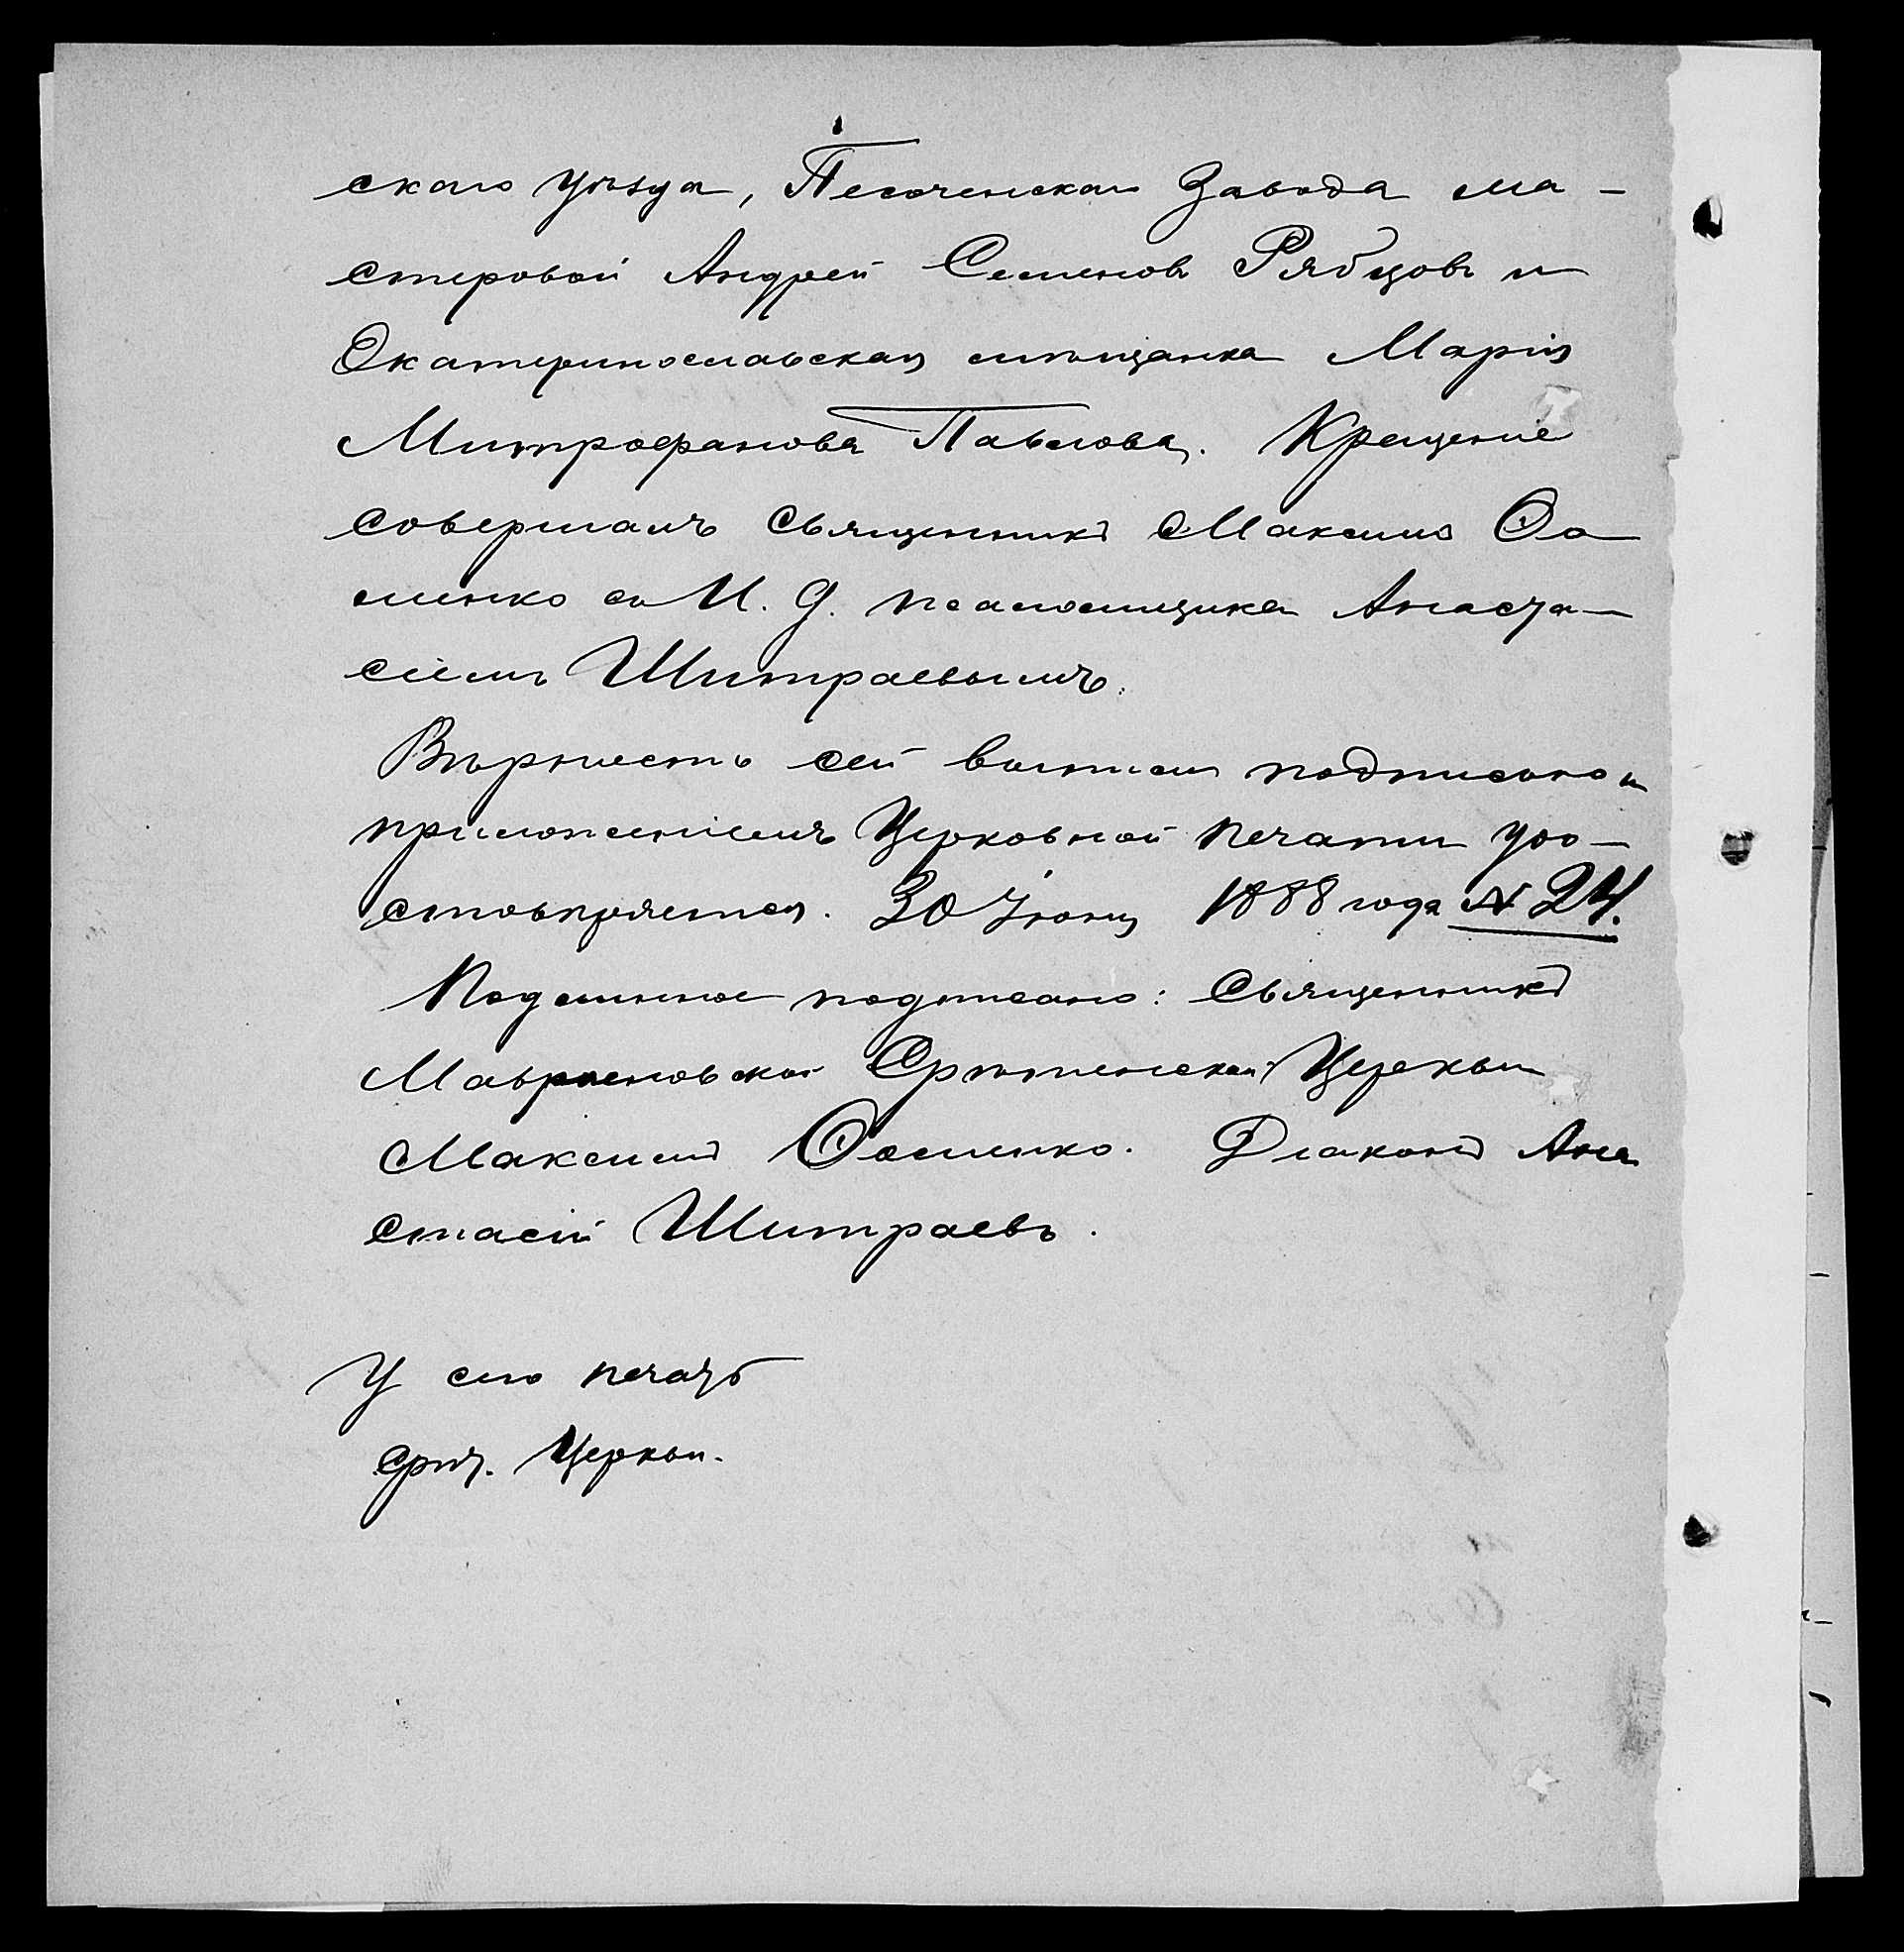 скаго уѣзда, Песоченскаго Завода ма-
стеровой Андрей Семеновъ Рябцовъ и
Екатеринославская мѣщанка Марія
Митрофанова Павлова. Крещеніе
совершалъ священникъ Максимъ Фо
менко съ И. д. псаломщика Анаста-
сіемъ Шитраевымъ.
Вѣрность сей выписи подписью и
приложеніемъ Церковной печати удо-
стовѣряется. 30 Іюня 1888 года № 24.
Подлинное подписано: Священникъ
Срѣтенской Церкви
Максимъ Фоменко. Діаконъ Ана
стасій Шитраевъ.
У сего печать
Срѣт. Церкви.